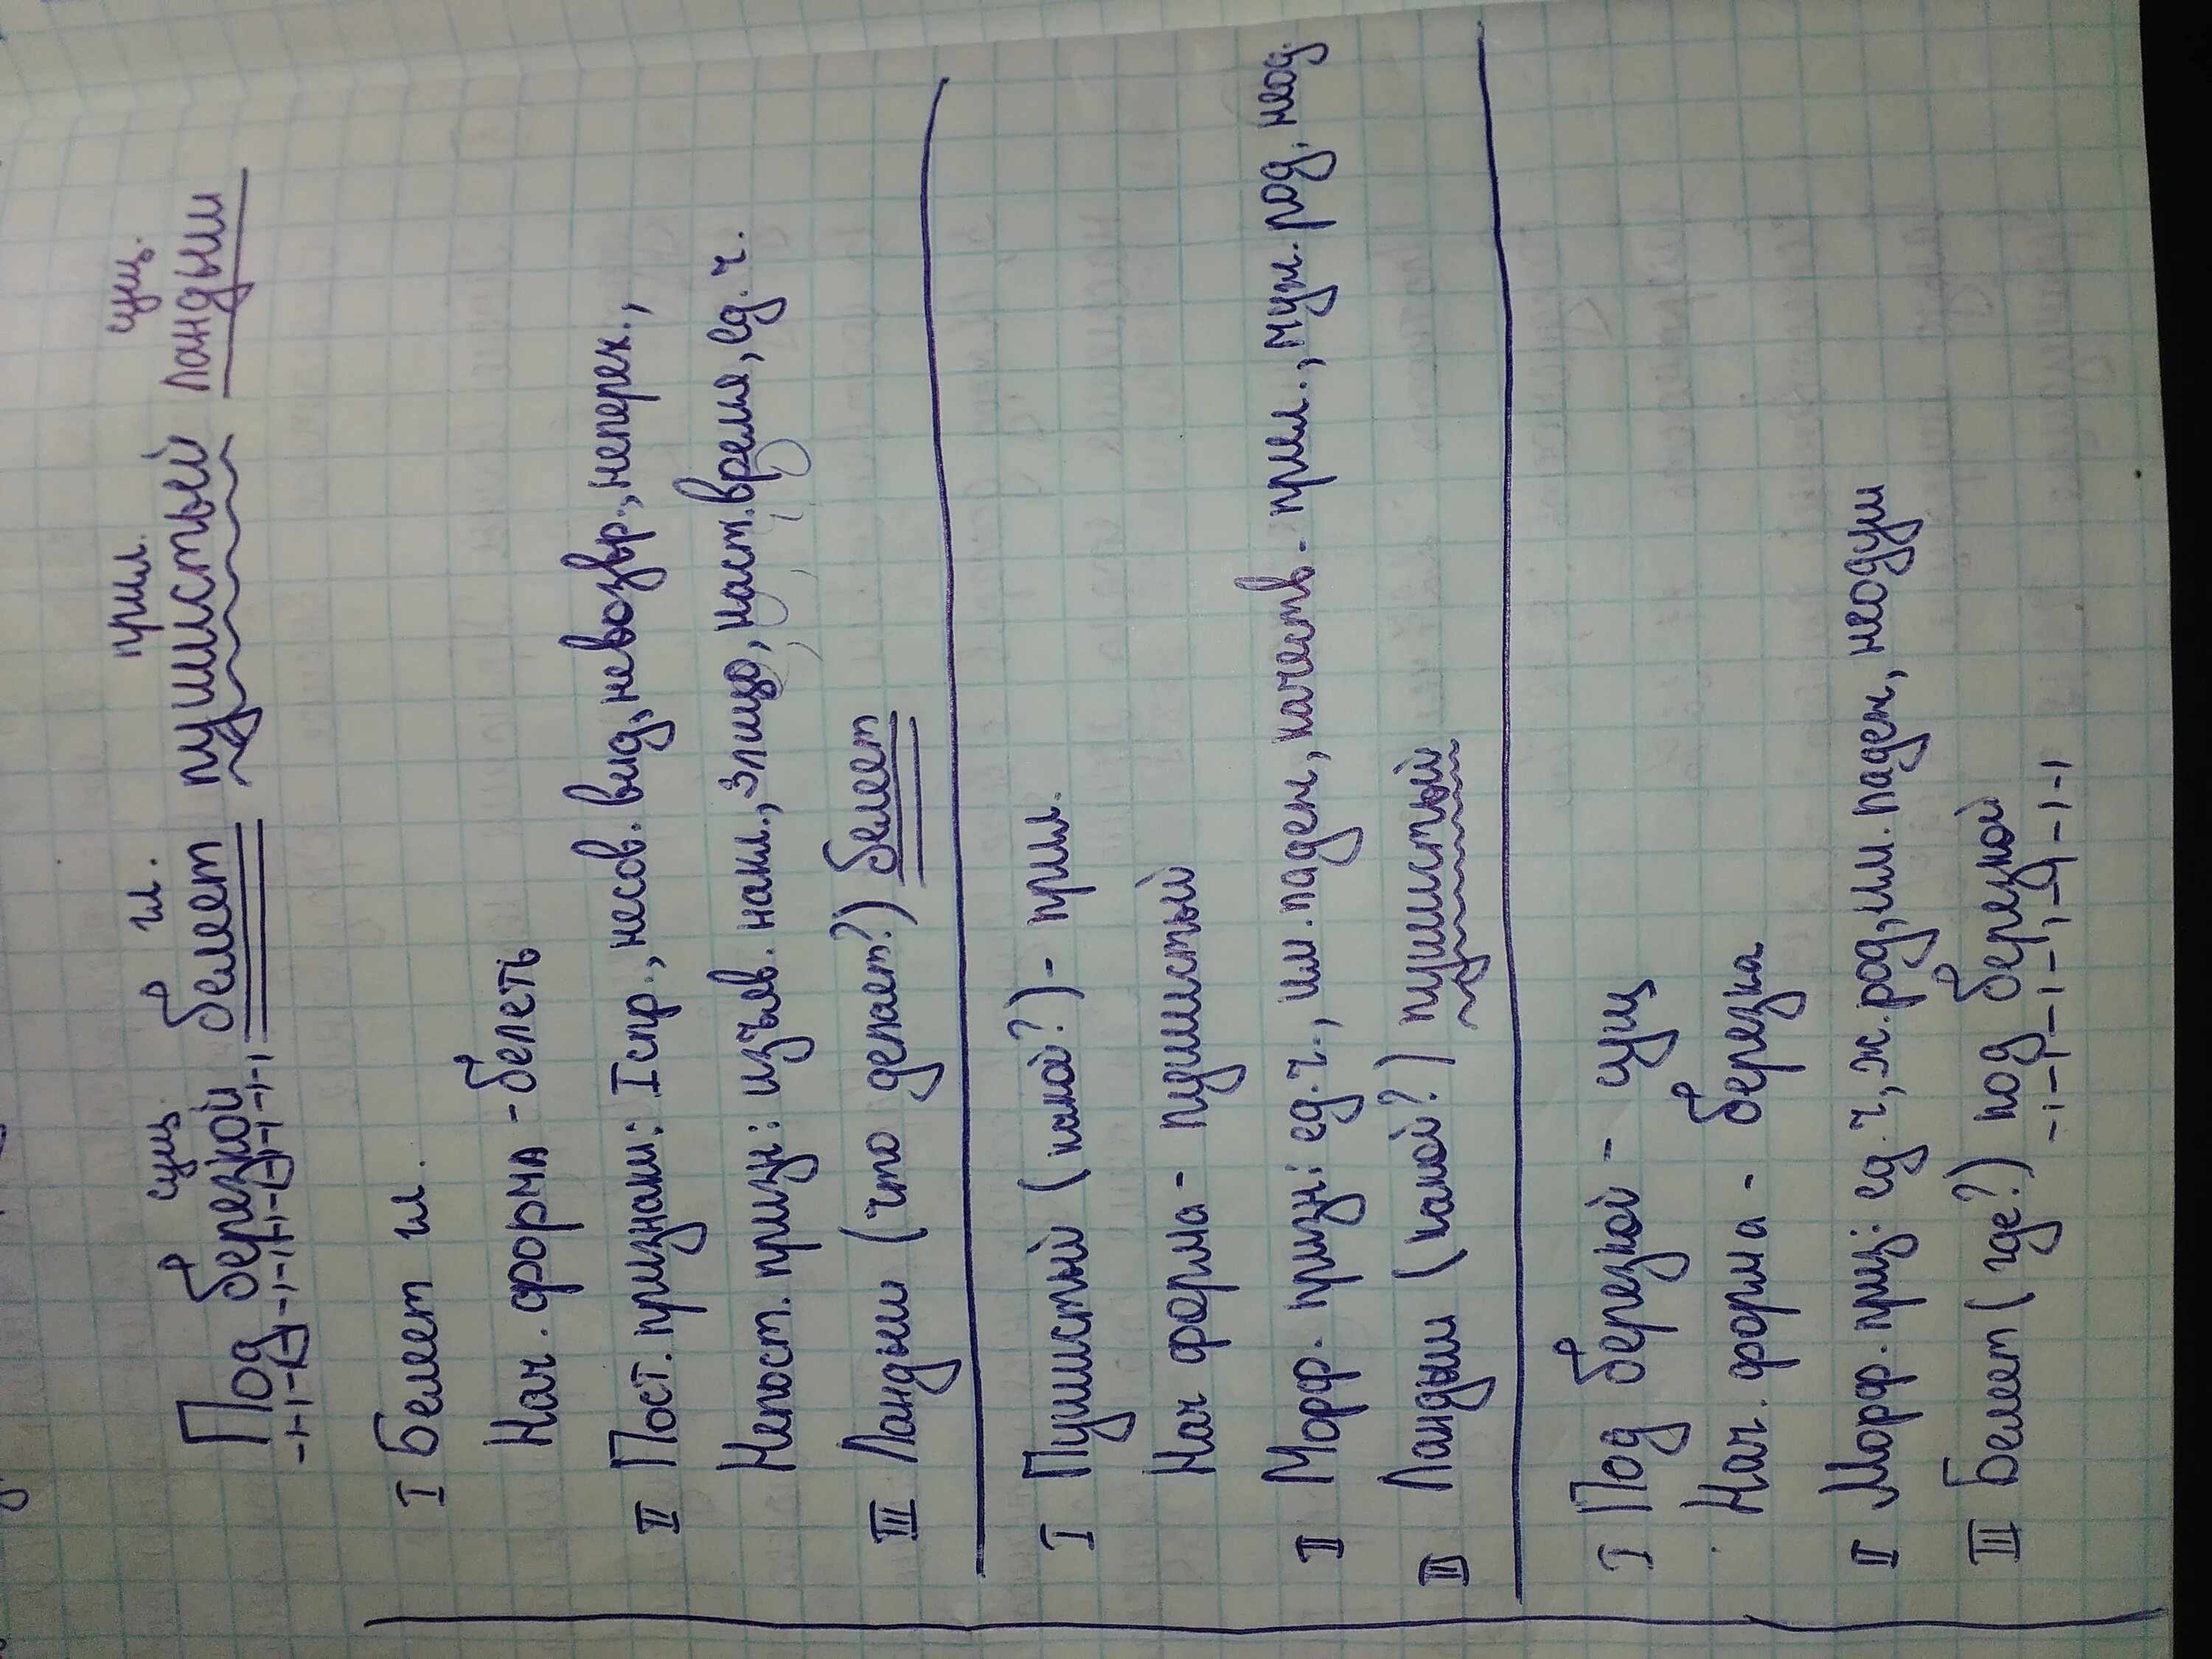 сущ. гл. прил. сущ.
Под березкой белеет пушистый ландыш
I Белеет гл.
Нач. форма - белеть
II Пост. признаки: I спр., несов. вид, невозвр., неперех.,
Непост. призн: изъяв. накл., 3 лицо, наст. время, ед. ч.
III Ландыш (что делает?) белеет
I Пушистый (какой?) - прил.
Нач форма - пушистый
II Морф. призн: ед. ч., им. падеж, качеств. прил., муж. род, неод.
III Ландыш (какой?) пушистый
I Под березкой - сущ
Нач. форма - березка
II Морф. приз: ед. ч, ж. род, им. падеж, неодуш
III Белеет (где?) под березкой